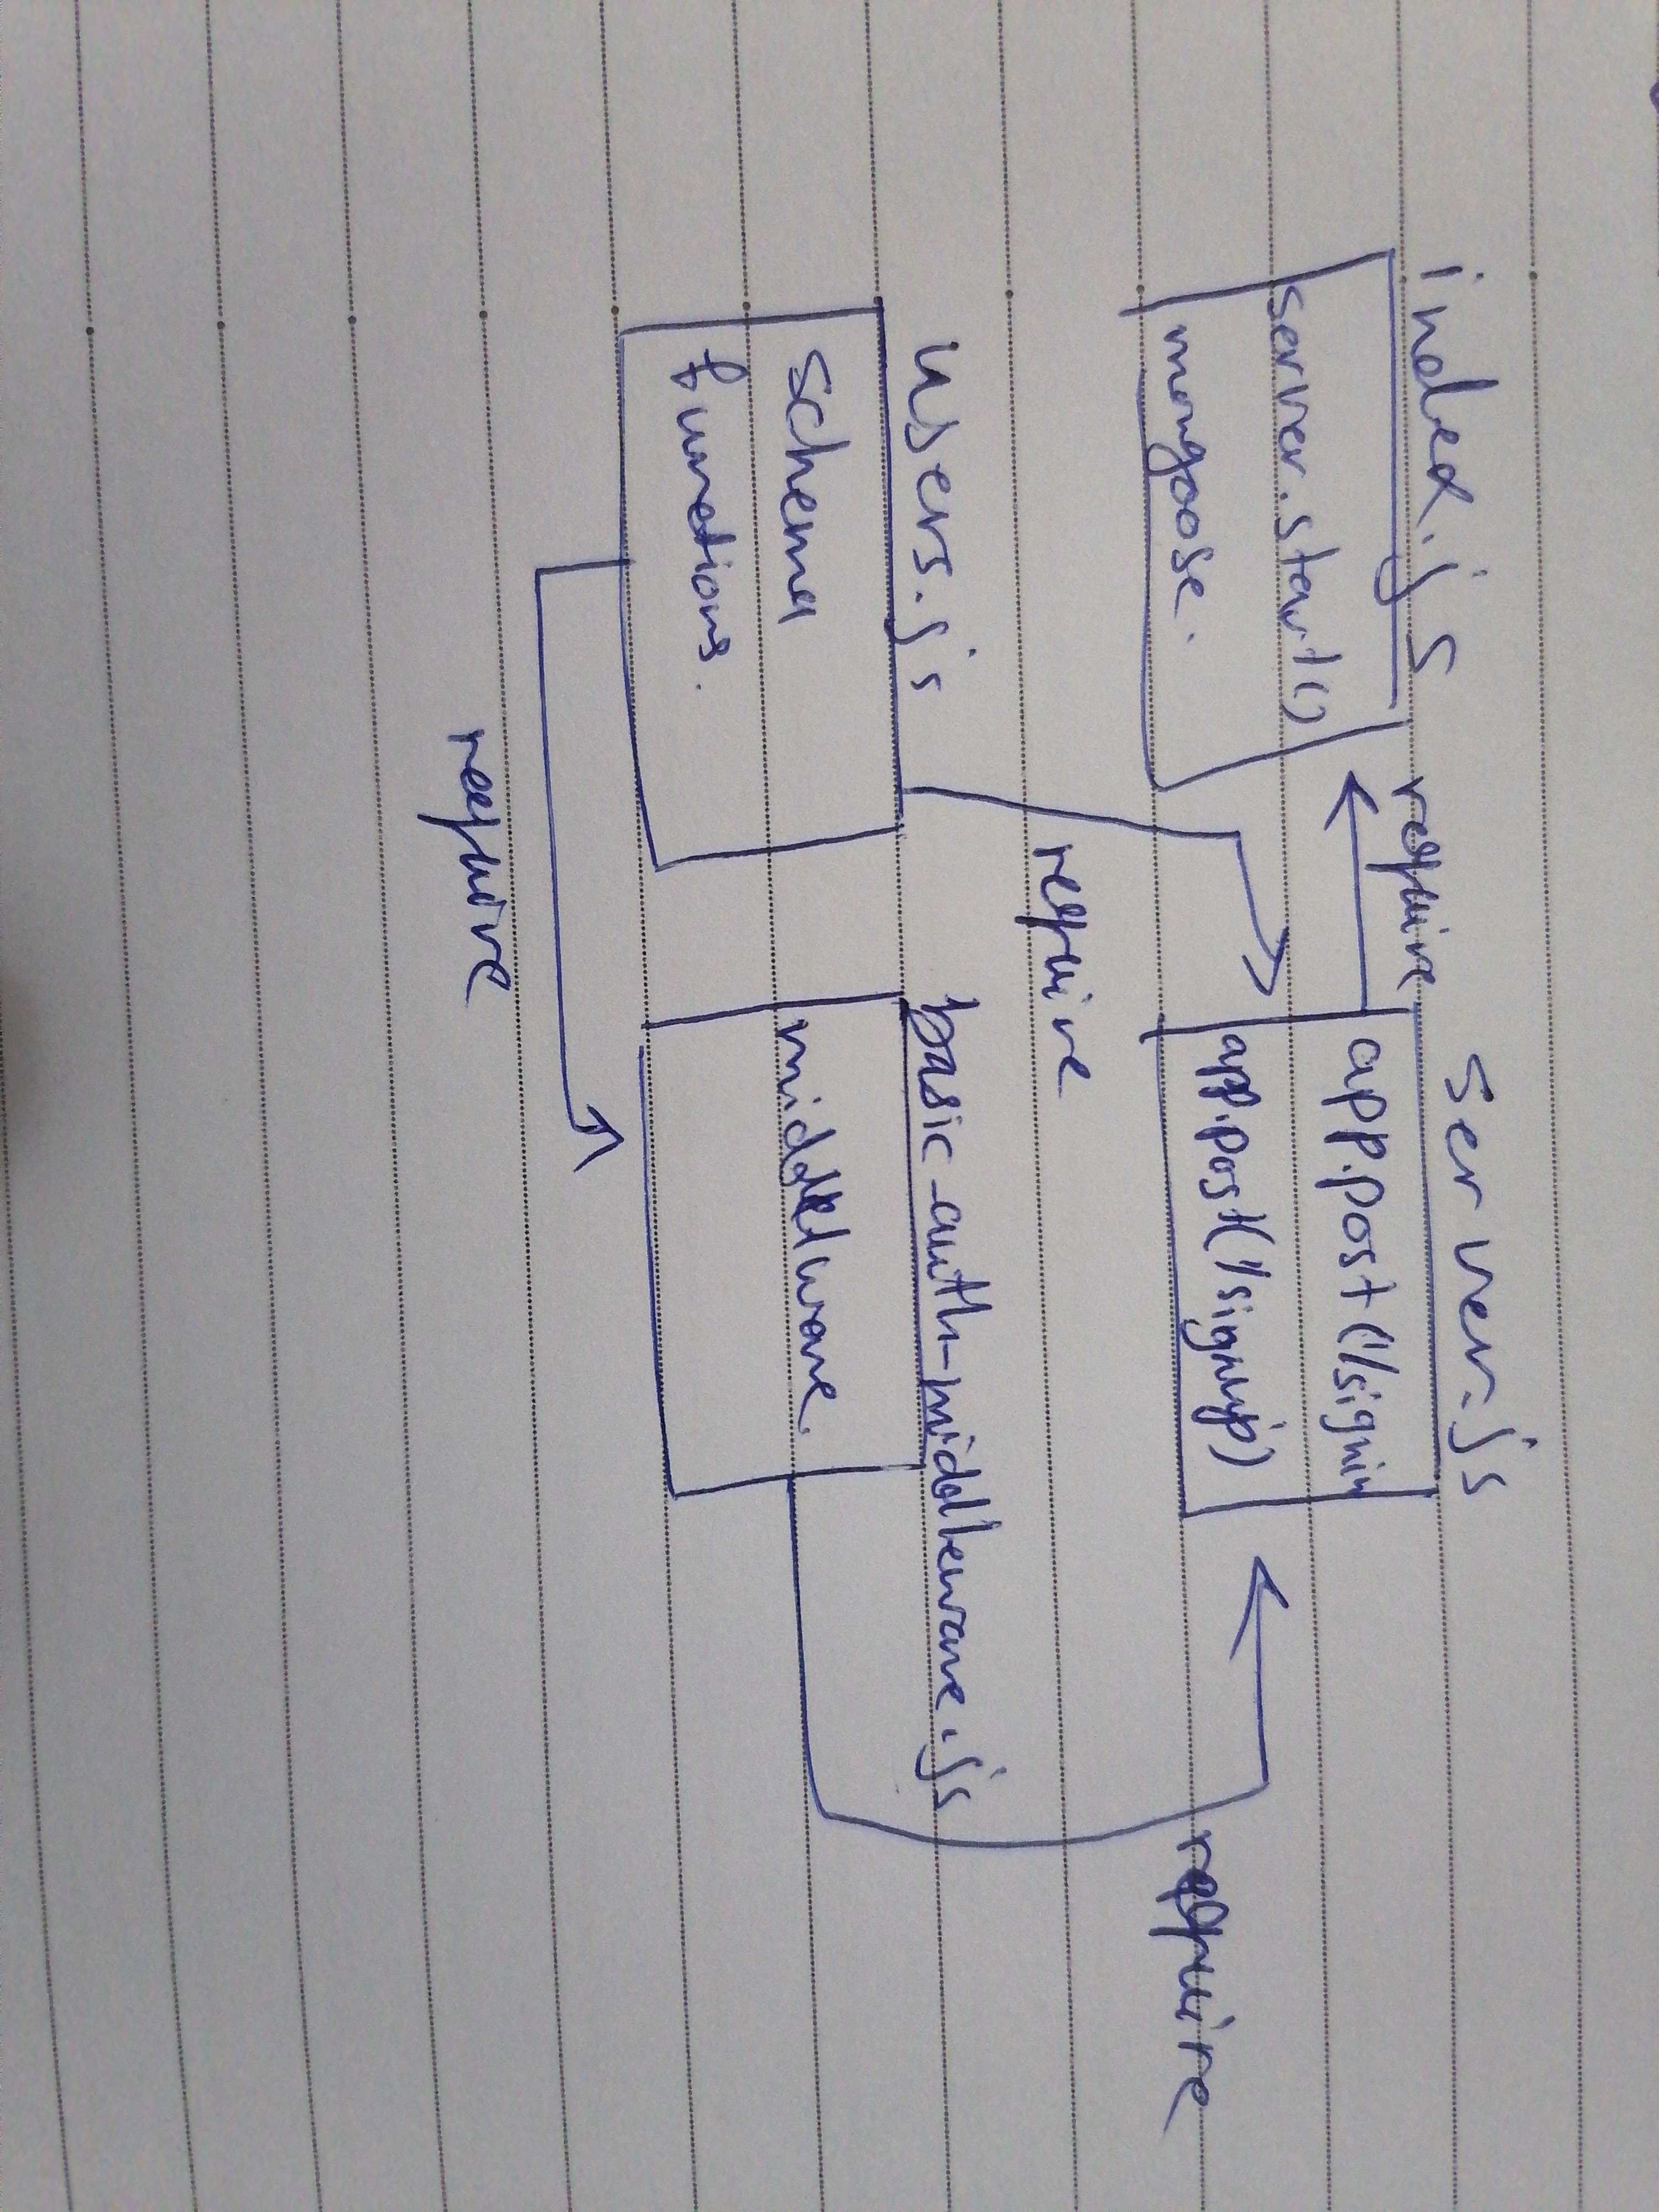 index.js
server.start()
mongoose.
require
server.js
app.post('/signin
app.post('/signup')
require
require
users.js
schema
functions.
basic-auth-middleware.js
middleware.
require